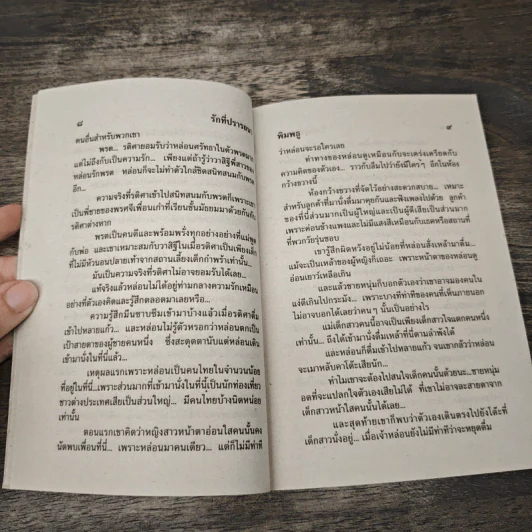 ๘
รักที่ปรารถนา
คนอื่นสำหรับพวกเขา
พรต... รติศายอมรับว่าหล่อนศรัทธาในตัวพรตมาก
แต่ไม่ถึงกับเป็นความรัก... เพียงแต่ถ้ารู้ว่าวาสิฐีพี่สาวของ
หล่อนรักพรต หล่อนก็จะไม่ทำตัวใกล้ชิดสนิทสนมกับพรต
อีก...
ความจริงที่รติศาเข้าไปสนิทสนมกับพรตก็เพราะเขา
เป็นพี่ชายของพรศจีเพื่อนเก่าที่เรียนชั้นมัธยมมาด้วยกันกับ
รติศาต่างหาก
พรตเป็นคนดีและพร้อมพรั่งทุกอย่างอย่างที่แม่พูด
กับพ่อ และเขาเหมาะสมกับวาสิฐีในเมื่อรติศาเป็นเพียงเด็ก
ที่ไม่มีหัวนอนปลายเท้าจากสถานเลี้ยงเด็กกำพร้าเท่านั้น...
มันเป็นความจริงที่รติศาไม่อาจยอมรับได้เลย...
แท้จริงแล้วหล่อนไม่ได้อยู่ท่ามกลางความรักเหมือน
อย่างที่ตัวเองคิดและรู้สึกตลอดมาเลยหรือ...
ความรู้สึกมึนชาบซึมเข้ามาบ้างแล้วเมื่อรติศาดื่ม
เข้าไปหลายแก้ว... และหล่อนไม่รู้ตัวหรอกว่าหล่อนตกเป็น
เป้าสายตาของผู้ชายคนหนึ่ง ซึ่งสะดุดตานับแต่หล่อนเดิน
เข้ามานั่งในที่นี้แล้ว...
เหตุผลแรกเพราะหล่อนเป็นคนไทยในจำนวนน้อย
ที่อยู่ในที่นี้...เพราะส่วนมากที่เข้ามานั่งในที่นี้เป็นนักท่องเที่ยว
ชาวต่างประเทศเสียเป็นส่วนใหญ่... มีคนไทยบ้างนิดหน่อย
เท่านั้น
ตอนแรกเขาคิดว่าหญิงสาวหน้าตาอ่อนใสคนนั้นคง
นัดพบเพื่อนที่นี่... เพราะหล่อนมาคนเดียว... แต่ก็ไม่มีทีท่า
พิมพลู
๙
ว่าหล่อนจะรอใครเลย
ท่าทางของหล่อนดูเหมือนกับจะเคร่งเครียดกับ
ความคิดของตัวเอง... ราวกับลืมไปว่ายังมีใครๆ อีกในห้อง
กว้างขวางนี้
ห้องกว้างขวางที่จัดไว้อย่างสะดวกสบาย... เหมาะ
สำหรับลูกค้าที่มานั่งดื่มมาคุยกันและฟังเพลงไปด้วย ลูกค้า
ของที่นี่ส่วนมากเป็นผู้ใหญ่และเป็นผู้ดีเสียเป็นส่วนมาก
เพราะค่อนข้างแพงและไม่มีแสงสีเหมือนกับเธคหรือสถานที่
ที่พวกวัยรุ่นชอบ
เขารู้สึกผิดหวังอยู่ไม่น้อยที่หล่อนสั่งเหล้ามาดื่ม...
แม้จะเป็นเหล้าของผู้หญิงก็เถอะ เพราะหน้าตาของหล่อนดู
อ่อนเยาว์เหลือเกิน
และแล้วชายหนุ่มก็บอกตัวเองว่าเขาอาจมองคนใน
แง่ดีเกินไปกระมัง... เพราะบางทีท่าทีของคนที่เห็นภายนอก
ไม่อาจบอกได้เลยว่าคนๆ นั้นเป็นอย่างไร
แม่เด็กสาวคนนี้อาจเป็นเพียงเด็กสาวใจแตกคนหนึ่ง
เท่านั้น... ถึงได้เข้ามานั่งดื่มเหล้าที่นี่ตามลำพังได้
และหล่อนก็ดื่มเข้าไปหลายแก้ว จนเขากลัวว่าหล่อน
จะเมาหลับคาโต๊ะเสียนัก...
ทำไมเขาจะต้องไปสนใจเด็กคนนั้นด้วยนะ...ชายหนุ่ม
อดที่จะแปลกใจตัวเองเสียไม่ได้ ที่เขาไม่อาจละสายตาจาก
เด็กสาวหน้าใสคนนั้นได้เลย...
และสุดท้ายเขาก็พบว่าตัวเองเดินตรงไปยังโต๊ะที่
เด็กสาวนั่งอยู่... เมื่อเจ้าหล่อนยังไม่มีทีท่าว่าจะหยุดดื่ม